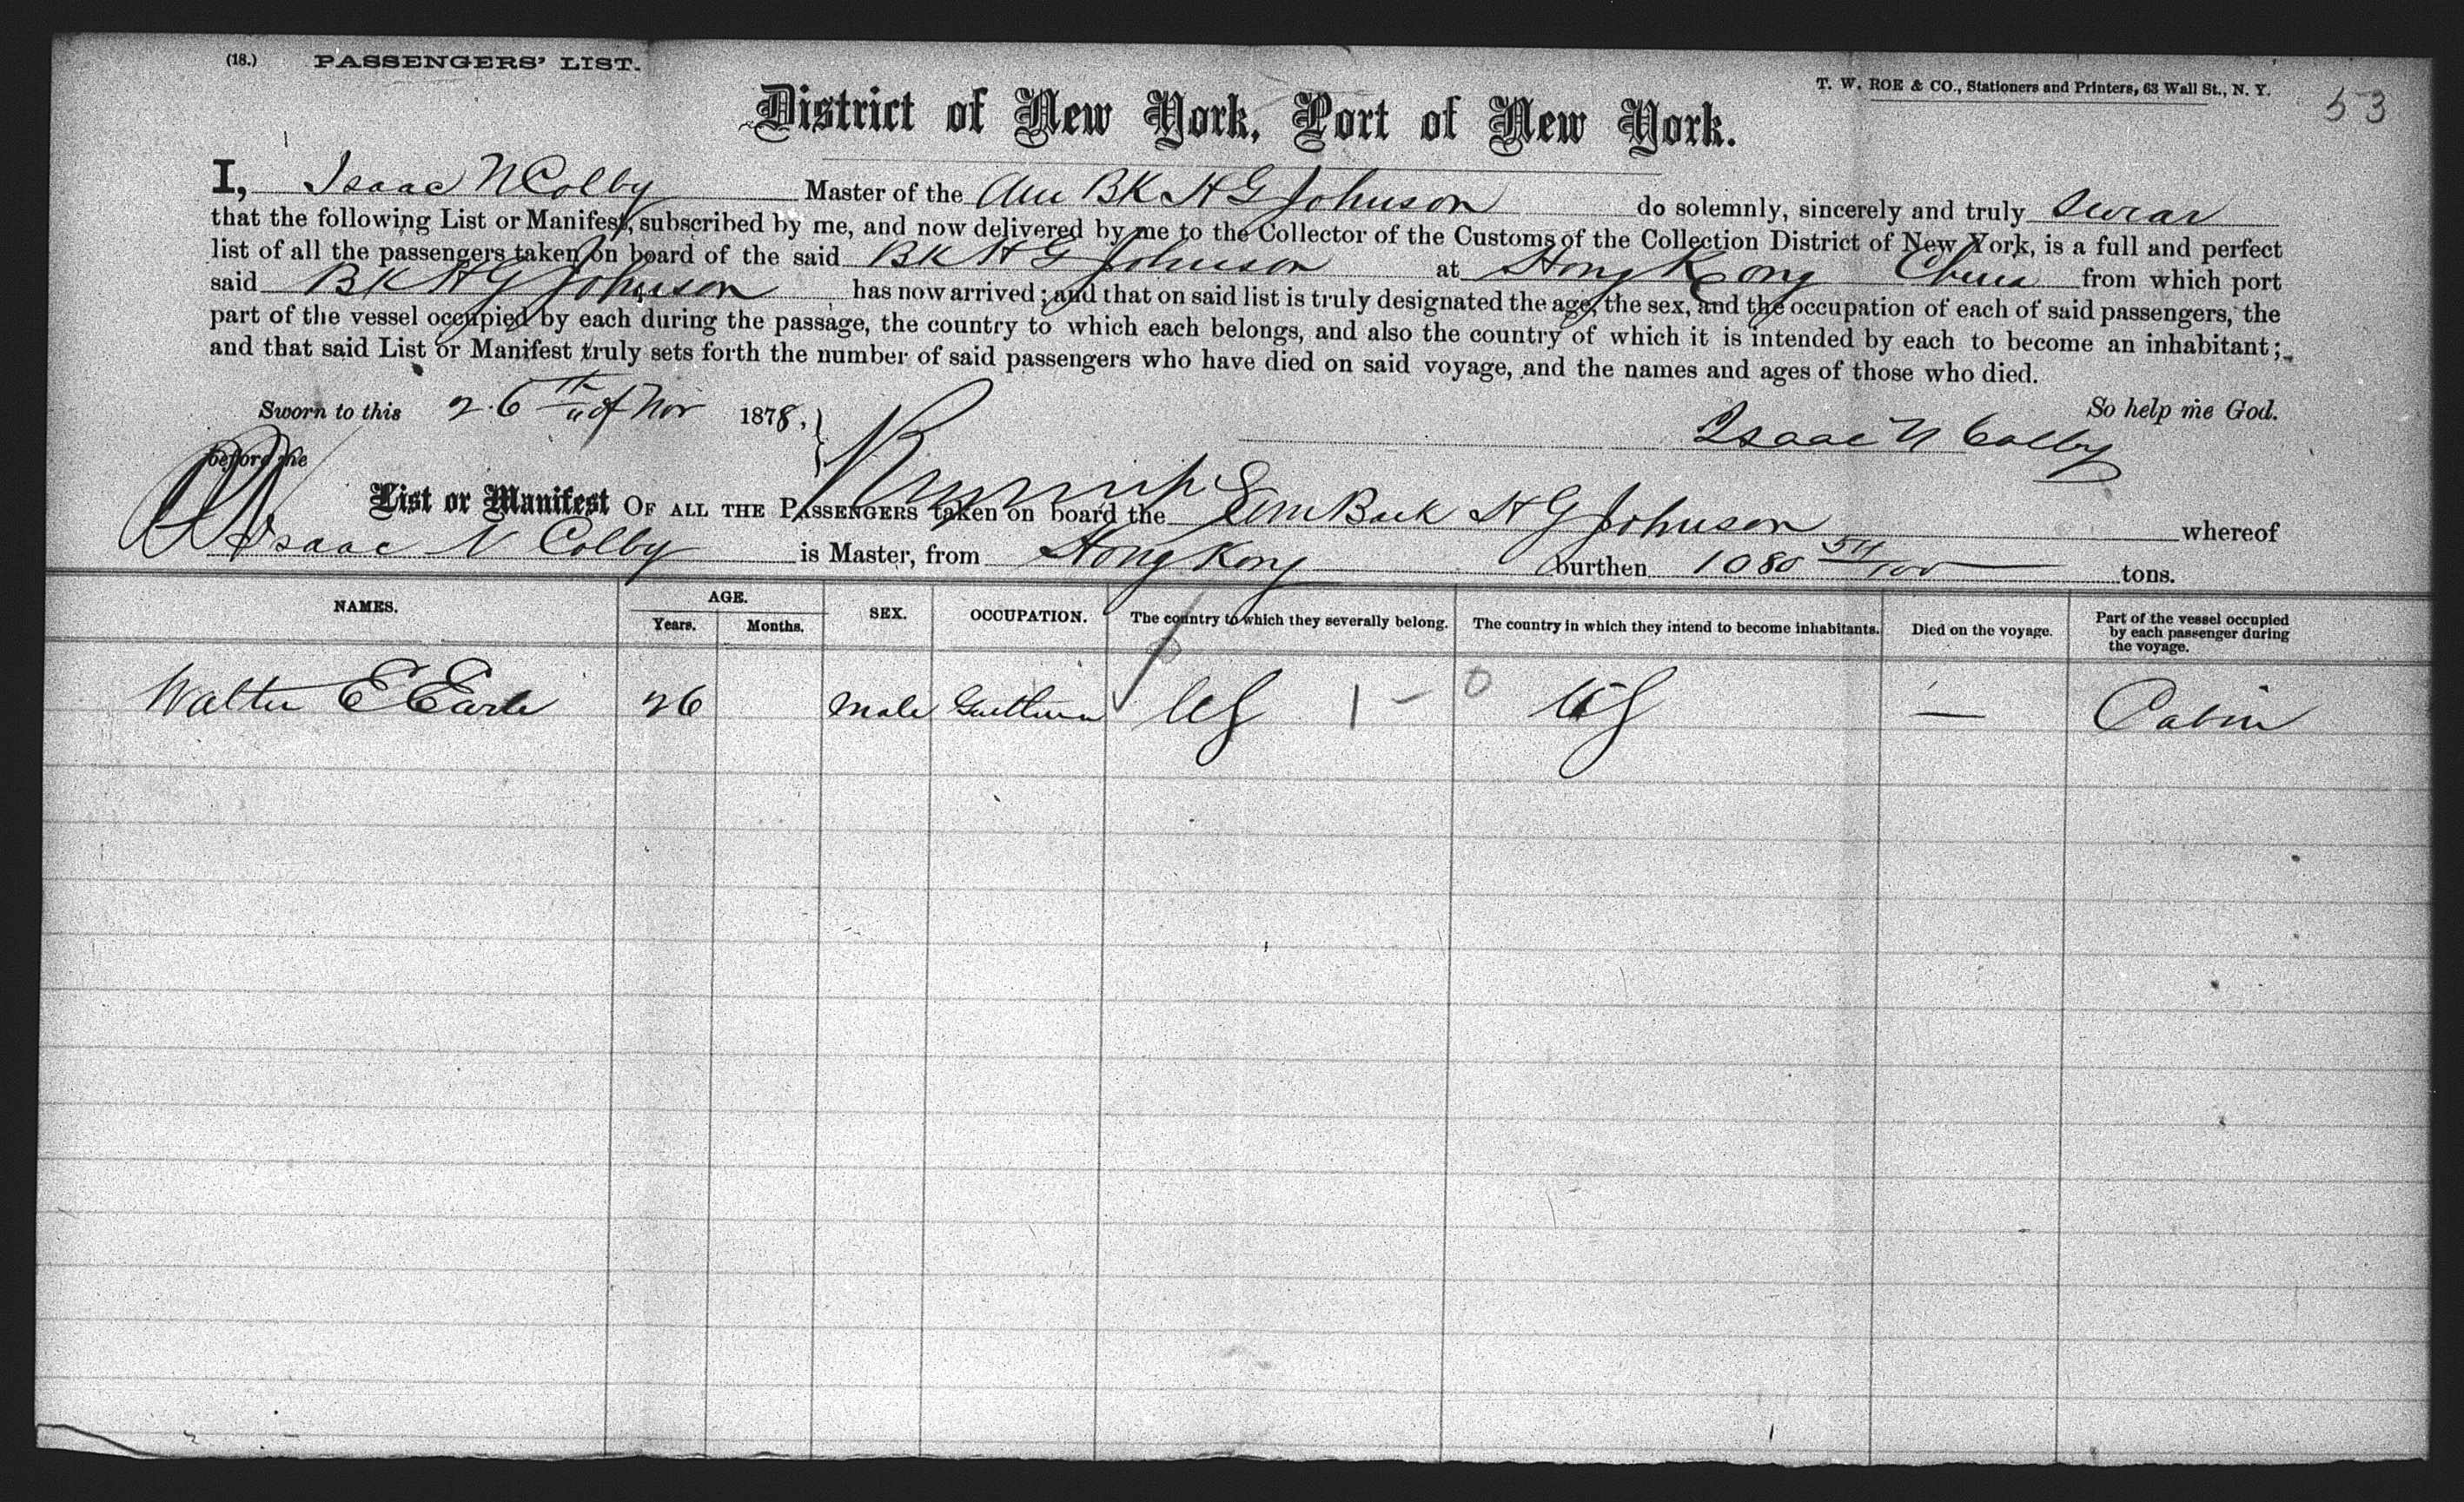 (18.) PASSENGERS' LIST.
T. W. ROE & CO., Stationers and Printers, 63 Wall St., N. Y.
53
District of New York, Port of New York.
I, Isaac N Colby Master of the Am BK H G Johnson do solemnly, sincerely and truly Swear
that the following List or Manifest, subscribed by me, and now delivered by me to the Collector of the Customs of the Collection District of New York, is a full and perfect
list of all the passengers taken on board of the said BK H G Johnson at Hong Kong China from which port
said BK H G Johnson has now arrived; and that on said list is truly designated the age, the sex, and the occupation of each of said passengers, the
part of the vessel occupied by each during the passage, the country to which each belongs, and also the country of which it is intended by each to become an inhabitant;
and that said List or Manifest truly sets forth the number of said passengers who have died on said voyage, and the names and ages of those who died.
Sworn to this 26th of Nov 1878, So help me God.
Isaac N Colby
before me
List or Manifest OF ALL THE PASSENGERS taken on board the Am Bark H G Johnson whereof
Isaac N Colby is Master, from Hong Kong burthen 1080 54/100 tons.
NAMES. AGE. Years. Months. SEX. OCCUPATION. The country to which they severally belong. The country in which they intend to become inhabitants. Died on the voyage. Part of the vessel occupied by each passenger during the voyage.
Walter E Earle 26 Male Gentleman US 1 - 0 US — Cabin